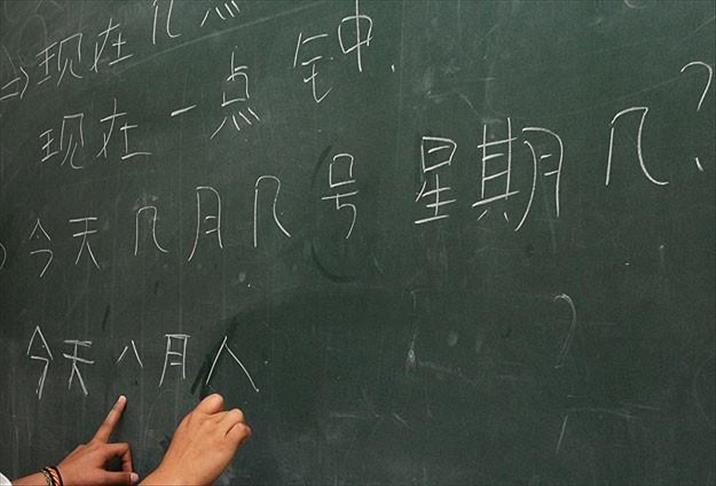 现在几点
现在一点钟.
今天几月几号 星期几?
今天八月八